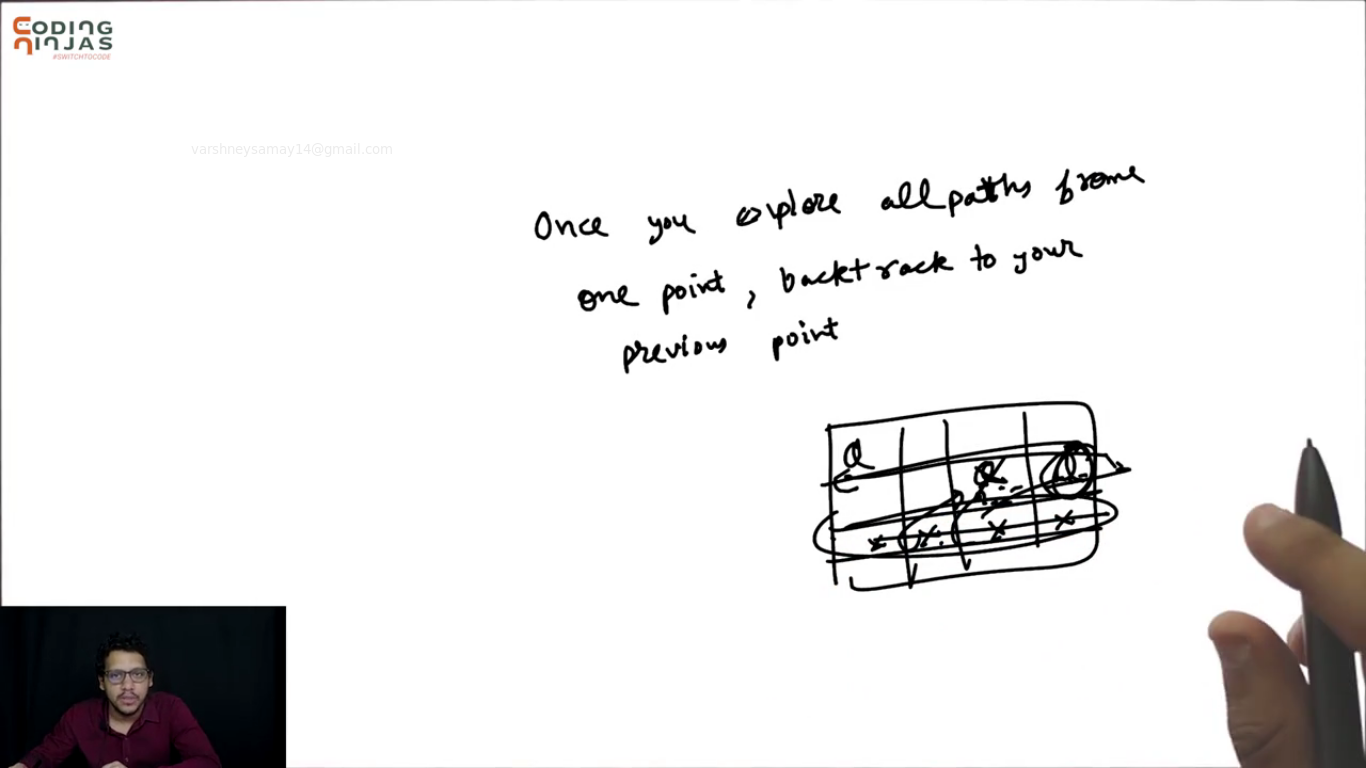 CODING
NINJAS
#SWITCHTOCODE
varshneysamay14@gmail.com
Once you explore all paths frome
one point, backtrack to your
previous point
Q
Q
Q
x x x x